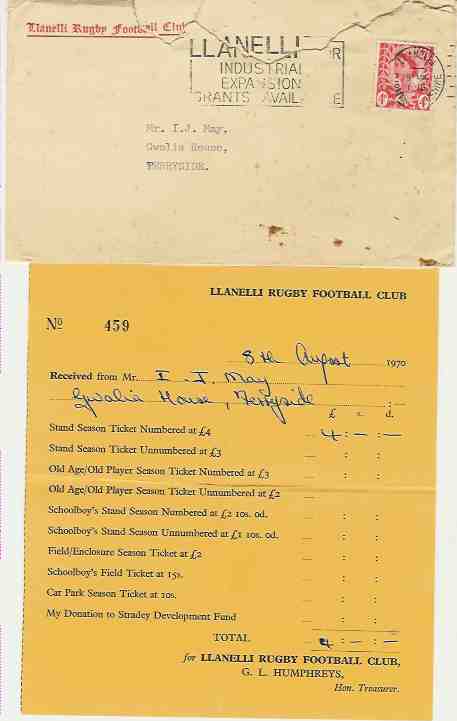 Llanelli Rugby Football Club
LLANELLI FOR
INDUSTRIAL
EXPANSION
GRANTS AVAILABLE
Mr. I.J. May,
Gwalia House,
FERRYSIDE.
LLANELLI RUGBY FOOTBALL CLUB
No 459
8th August 1970
Received from Mr. I. J. May
Gwalia House, Ferryside
£ s. d.
Stand Season Ticket Numbered at £4 4 : - : -
Stand Season Ticket Unnumbered at £3 : :
Old Age/Old Player Season Ticket Numbered at £3 : :
Old Age/Old Player Season Ticket Unnumbered at £2 : :
Schoolboy's Stand Season Numbered at £2 10s. 0d. : :
Schoolboy's Stand Season Unnumbered at £1 10s. 0d. : :
Field/Enclosure Season Ticket at £2 : :
Schoolboy's Field Ticket at 15s. : :
Car Park Season Ticket at 20s. : :
My Donation to Stradey Development Fund : :
TOTAL 4 : - : -
for LLANELLI RUGBY FOOTBALL CLUB,
G. L. HUMPHREYS,
Hon. Treasurer.